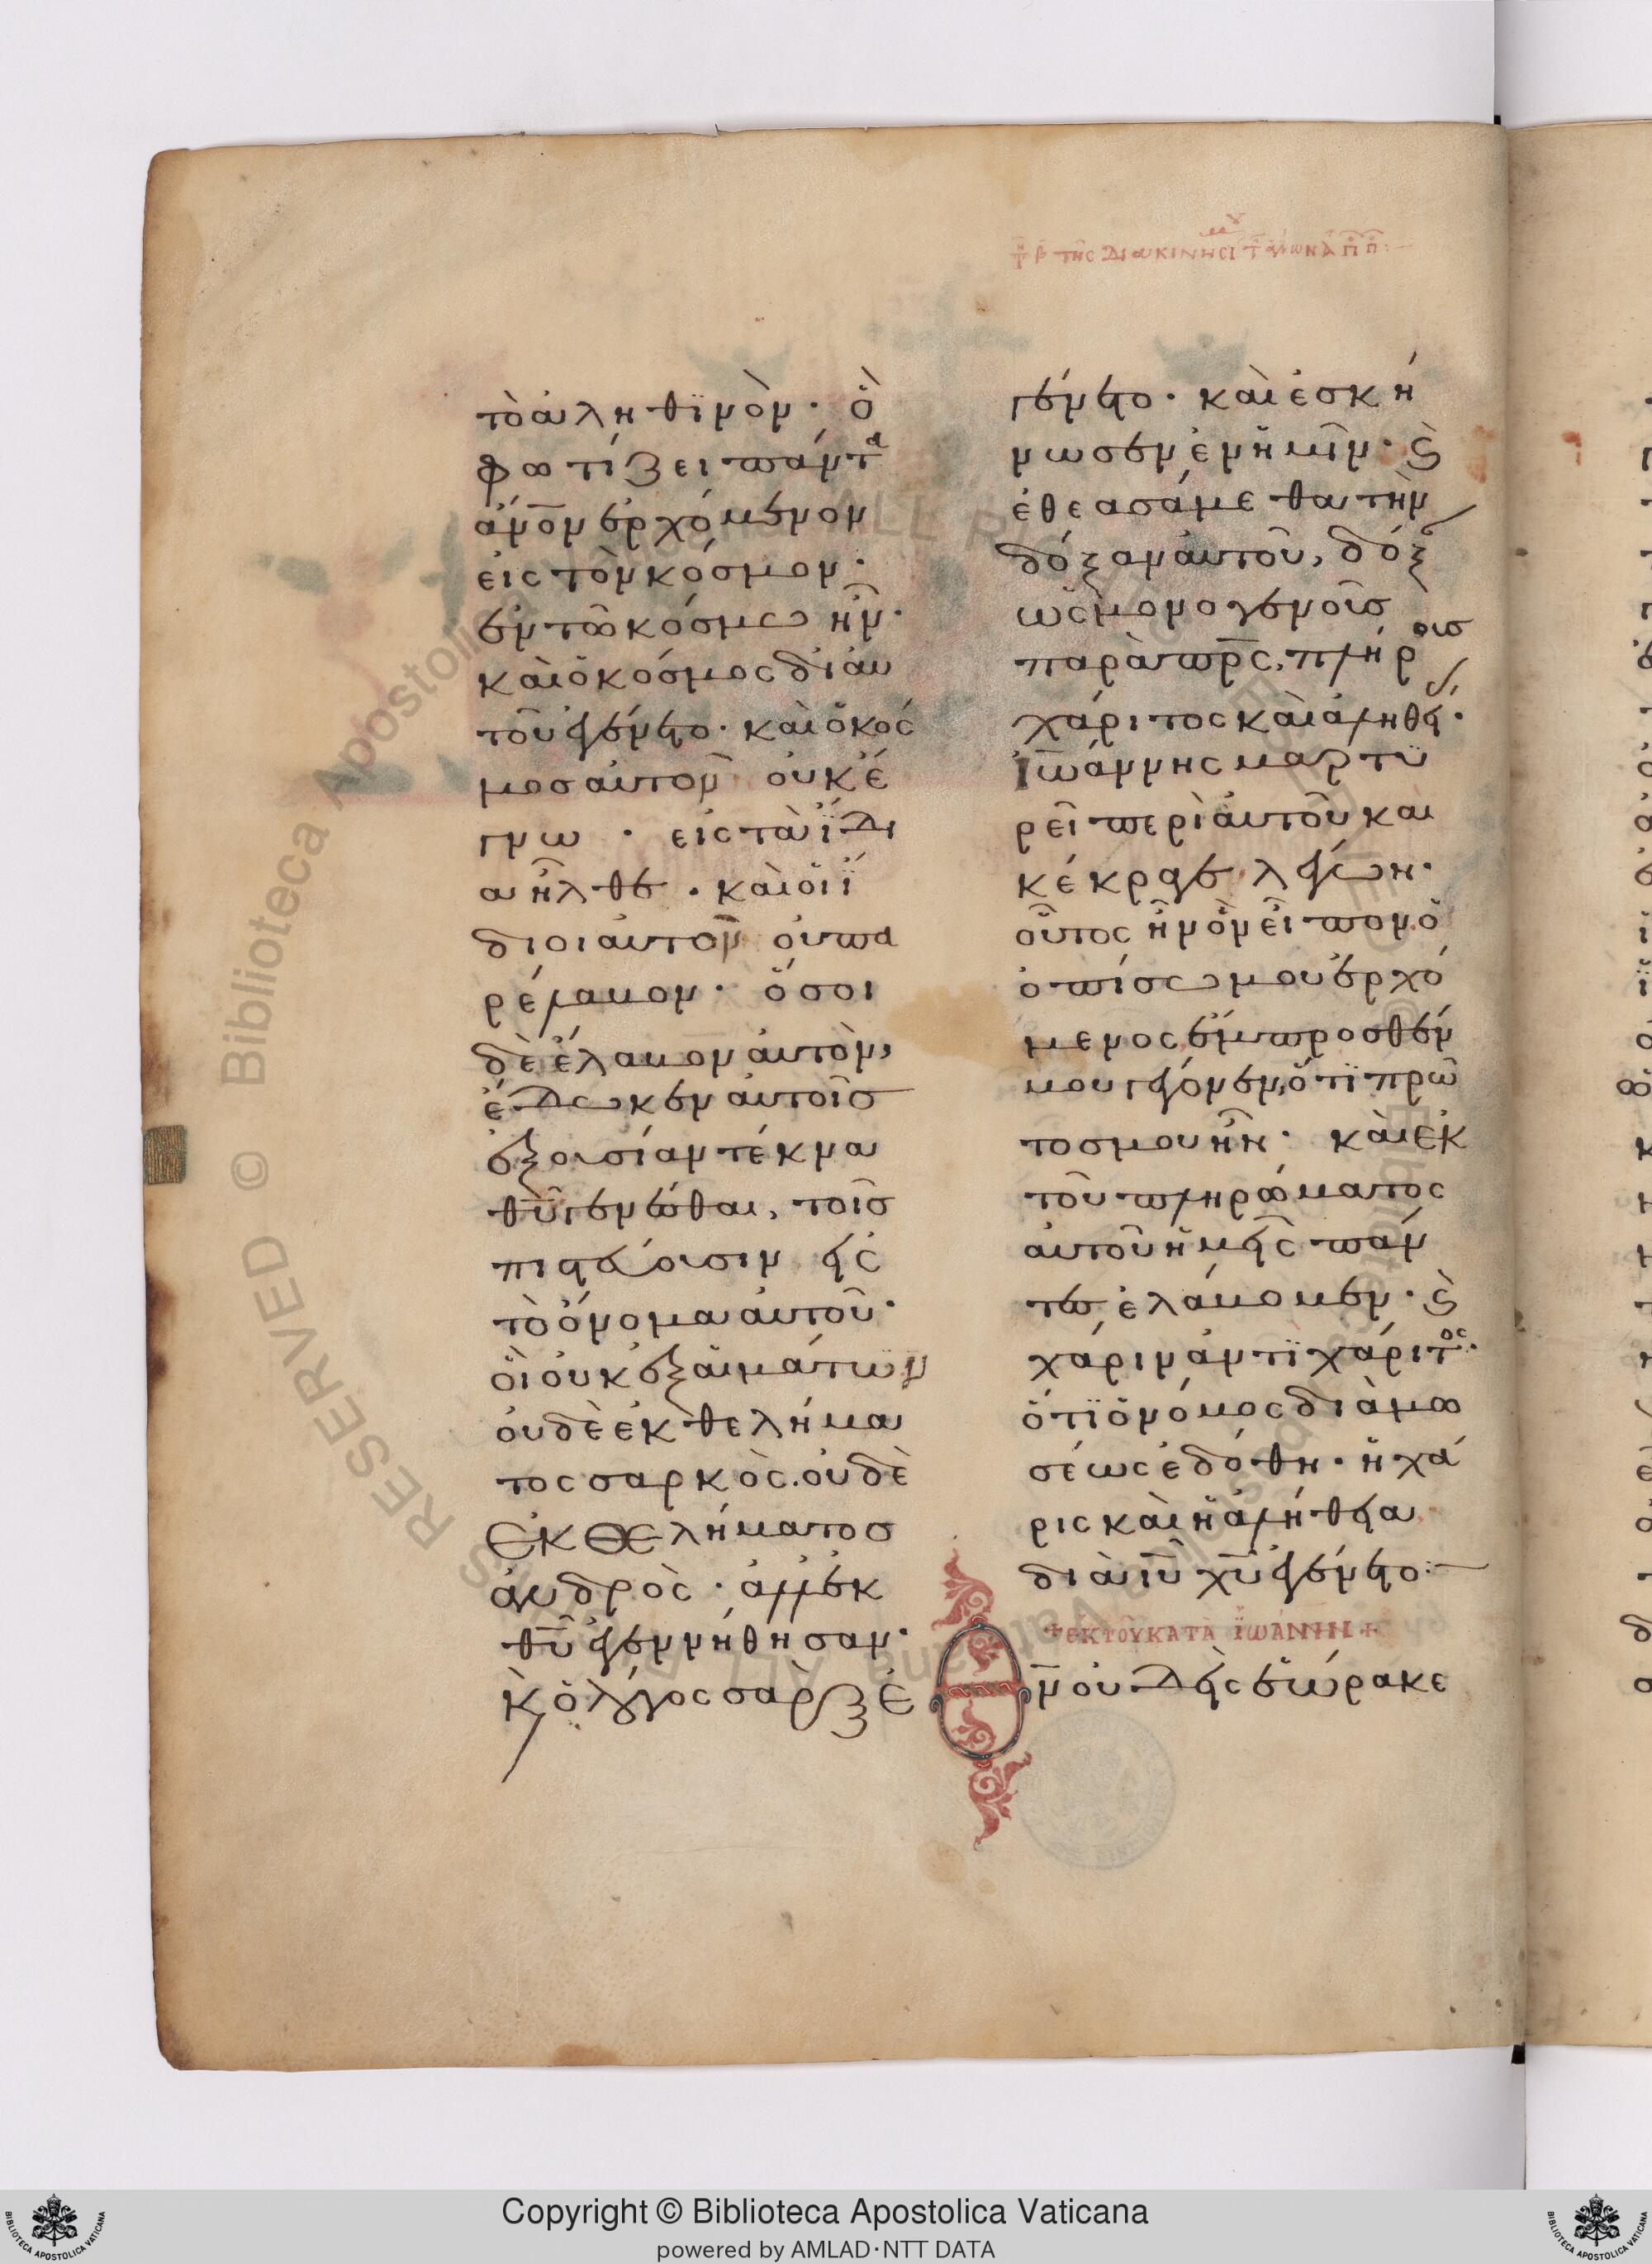 τὸ ἀληθϊνὸν · ὃ
φωτίζει πάντα
ἄνον ἐρχόμενον
εἰς τὸν κόσμον ·
ἐν τῶ κόσμω ἦν ·
καὶ ὁ κόσμος δι ἀυ
τοῦ ἐγένετο · καὶ ὁ κόσ
μοσ ἀυτον οὐκ έ
γνω · εἰς τὰ ΐδι
α ἦλθε · καὶ οἱ ΐ
διοι ἀυτον ὀυ πα
ρέλαβον · ὅσοι
δὲ ἔλαβον ἀυτὸν,
ἔδωκεν ἀυτοῖσ
ἐξουσίαν τέκνα
θῦ γενέσθαι, τοῖσ
πιστέυουσιν εἰς
τὸ ὄνομα ἀυτοῦ ·
ὃι ὀυκ ἐξ αἱμάτων
ὀυδὲ ἐκ θελήμα
τος σαρκὸς. ὀυδὲ
ἐκ θελήματοσ
ἀνδρὸς · ἀλλ ἐκ
θῦ ἐγεννήθησαν ·
κ ὁ λόγος σὰρξ ἐ
γένετο · καὶ ἐσκή
νωσεν ἐν ἡμῖν · ϛ
ἐθεασάμεθα τὴν
δόξαν ἀυτοῦ, δόξ
ὡς μονογενοῦσ
παρὰ πρς, πλήρουσ
χάριτος καὶ ἀληθεί ·
ϊωάννης μαρτυ
ρεῖ περὶ ἀυτοῦ καὶ
κέκραγε λέγων ·
οὗτος ἦν ὃν εἶπον ὁ
ὀπίσω μου ἐρχό
μενος ἔμπροσθέν
μου γέγονεν, ὅτϊ πρῶ
τοσ μου ἦν · καὶ ἐκ
τοῦ πληρώματος
ἀυτοῦ ἡμεῖς πάν
τες ἐλάβομεν · ϛ
χάριν ἀντϊ χάριτος ·
ὅτϊ ὁ νόμος διὰ μω
σέως ἐδόθη · ἡ χά
ρις καὶ ἡ ἀλήθεια
διὰ ἰῦ χῦ ἐγένετο :
+ ΕΚ ΤΟΥ ΚΑΤΑ ΪΩΑΝΝΗΝ +
Θν ὀυδεὶς ἑώρακε
Copyright © Biblioteca Apostolica Vaticana
powered by AMLAD·NTT DATA